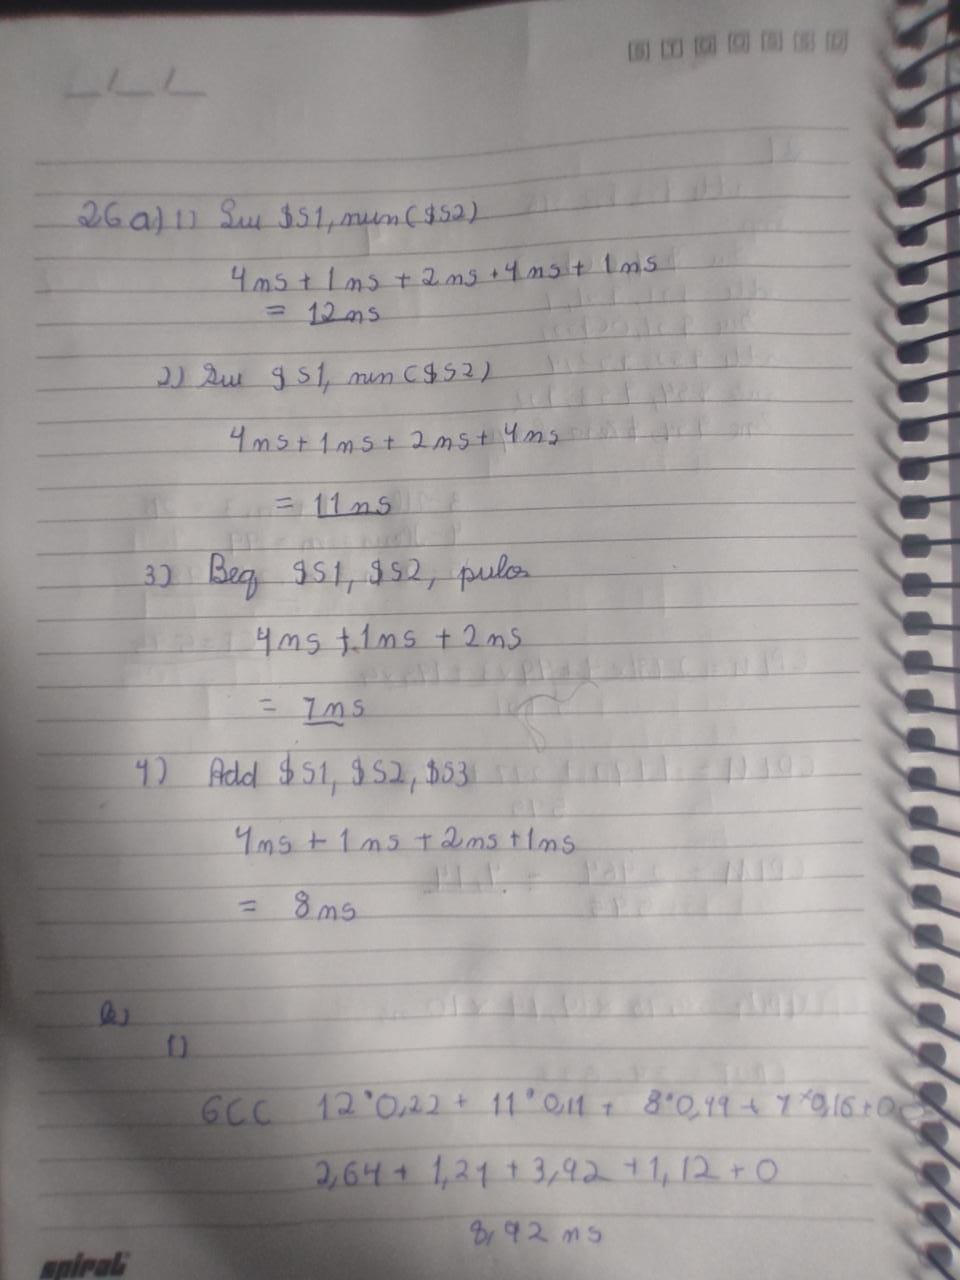 26 a) 1) Lw $S1, num($S2)
4ns + 1ns + 2ns + 4ns + 1ns
= 12ns
2) Sw $S1, num($S2)
4ns + 1ns + 2ns + 4ns
= 11ns
3) Beq $S1, $S2, pulo
4ns + 1ns + 2ns
= 7ns
4) Add $S1, $S2, $S3
4ns + 1ns + 2ns + 1ns
= 8ns
b)
1)
GCC 12*0,22 + 11*0,11 + 8*0,49 + 7*0,16 + 0
2,64 + 1,21 + 3,92 + 1,12 + 0
8,92 ns
spiral